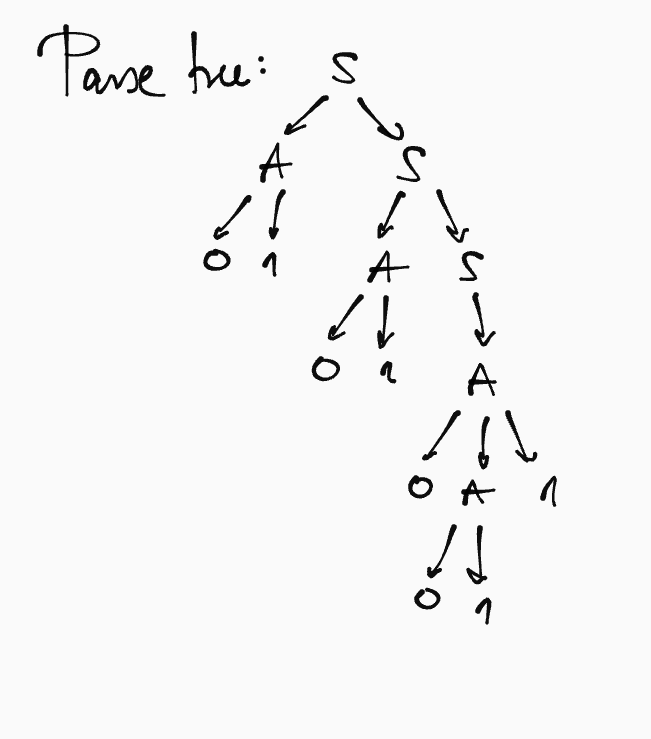 Parse tree: S
A S
0 1 A S
0 1 A
0 A 1
0 1